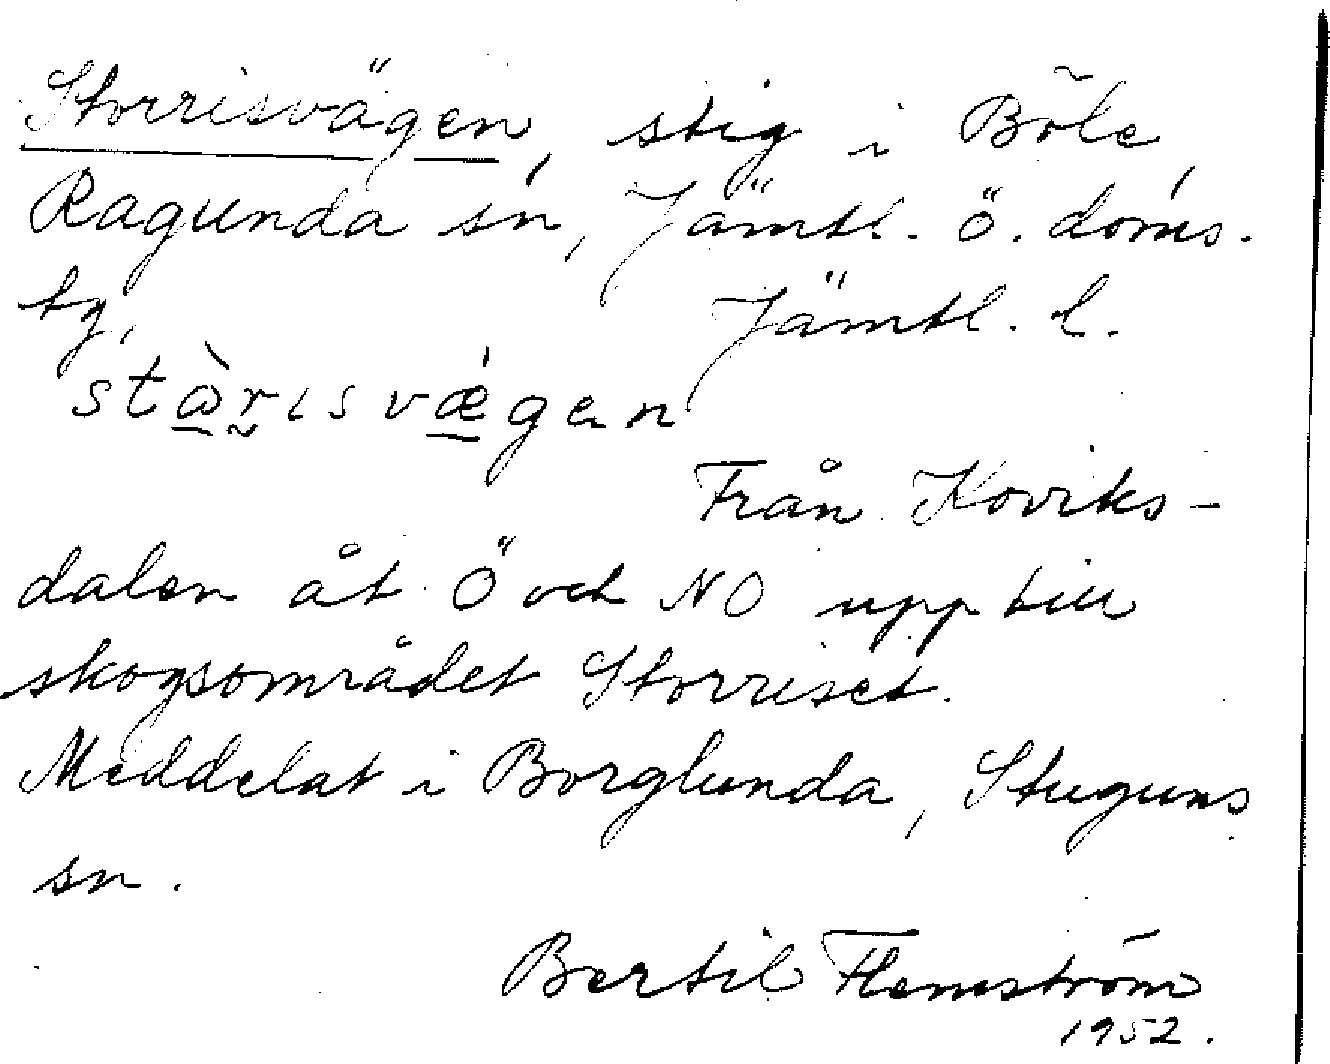 Storrisvägen, stig i Böle,
Ragunda sn, Jämtl. ö. doms.
tg, Jämtl. l.
stàrısvǽgen
Från Koviks-
dalen åt Ö och NO upp till
skogsområdet Storriset.
Meddelat i Borglunda, Stuguns
sn.
Bertil Flemström
1952.